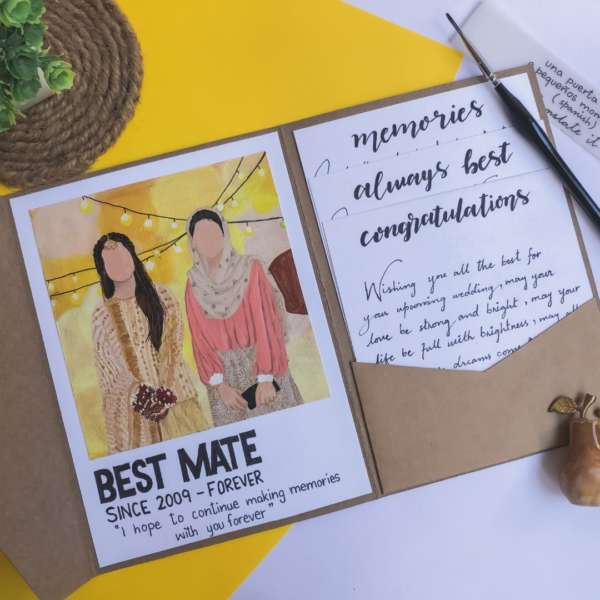 BEST MATE
SINCE 2009 - FOREVER
"I hope to continue making memories
with you forever"
memories
always best
congratulations
Wishing you all the best for
your upcoming wedding, may your
love be strong and bright, may your
life be full with brightness, may all
dreams come
una puerta
pequeños mom
(spanish)